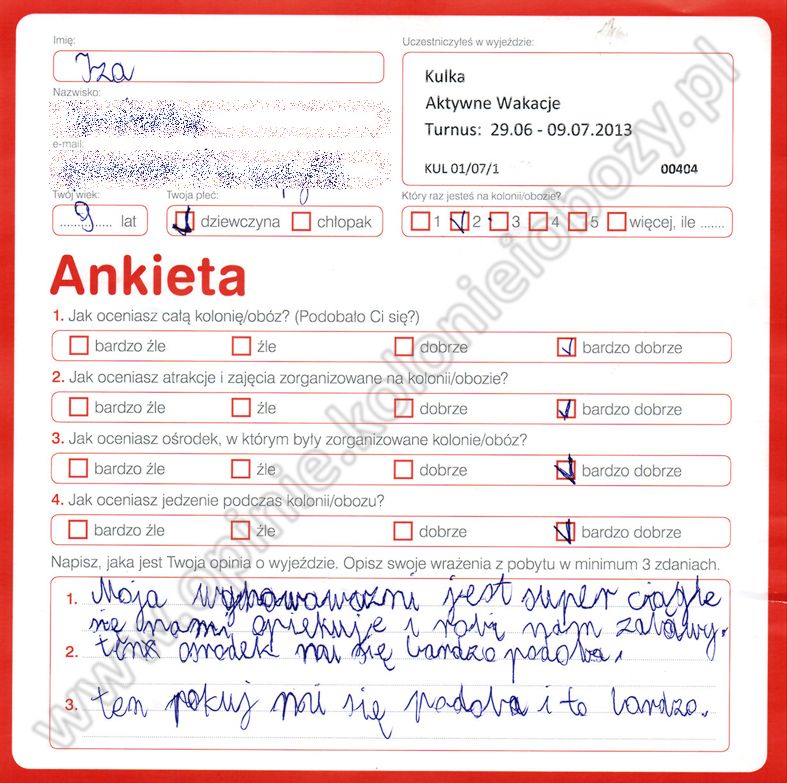 Imię:
Iza
Nazwisko:
e-mail:
Twój wiek:
9 lat
Twoja płeć:
dziewczyna chłopak
Uczestniczyłeś w wyjeździe:
Kulka
Aktywne Wakacje
Turnus: 29.06 - 09.07.2013
KUL 01/07/1 00404
Który raz jesteś na kolonii/obozie?
1 2 3 4 5 więcej, ile .......
Ankieta
1. Jak oceniasz całą kolonię/obóz? (Podobało Ci się?)
bardzo źle źle dobrze bardzo dobrze
2. Jak oceniasz atrakcje i zajęcia zorganizowane na kolonii/obozie?
bardzo źle źle dobrze bardzo dobrze
3. Jak oceniasz ośrodek, w którym były zorganizowane kolonie/obóz?
bardzo źle źle dobrze bardzo dobrze
4. Jak oceniasz jedzenie podczas kolonii/obozu?
bardzo źle źle dobrze bardzo dobrze
Napisz, jaka jest Twoja opinia o wyjeździe. Opisz swoje wrażenia z pobytu w minimum 3 zdaniach.
1. Moja jest super ciągle
się nami opiekuje i robi nam zabawy.
2. ośrodek się bardzo podoba.
3. ten się podoba i to bardzo.
www.opinie.kolonieiobozy.pl